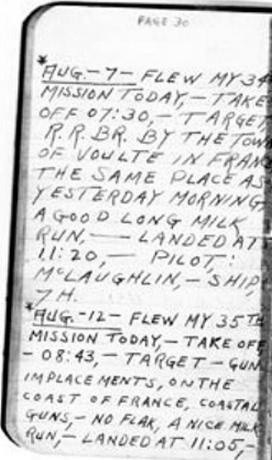 PAGE 30
*AUG.-7- FLEW MY 34
MISSION TODAY,- TAKE
OFF 07:30,- TARGET,
R.R. BR. BY THE TOWN
OF VOULTE IN FRAN
THE SAME PLACE AS
YESTERDAY MORNING
A GOOD LONG MILK
RUN,— LANDED AT
11:20,- PILOT,:
McLAUGHLIN,- SHIP,
7H.
*AUG.-12- FLEW MY 35TH
MISSION TODAY,- TAKE OFF,
- 08:43,- TARGET- GUN
IMPLACEMENTS, ON THE
COAST OF FRANCE, COASTAL
GUNS,- NO FLAK, A NICE MILK
RUN,- LANDED AT 11:05,-